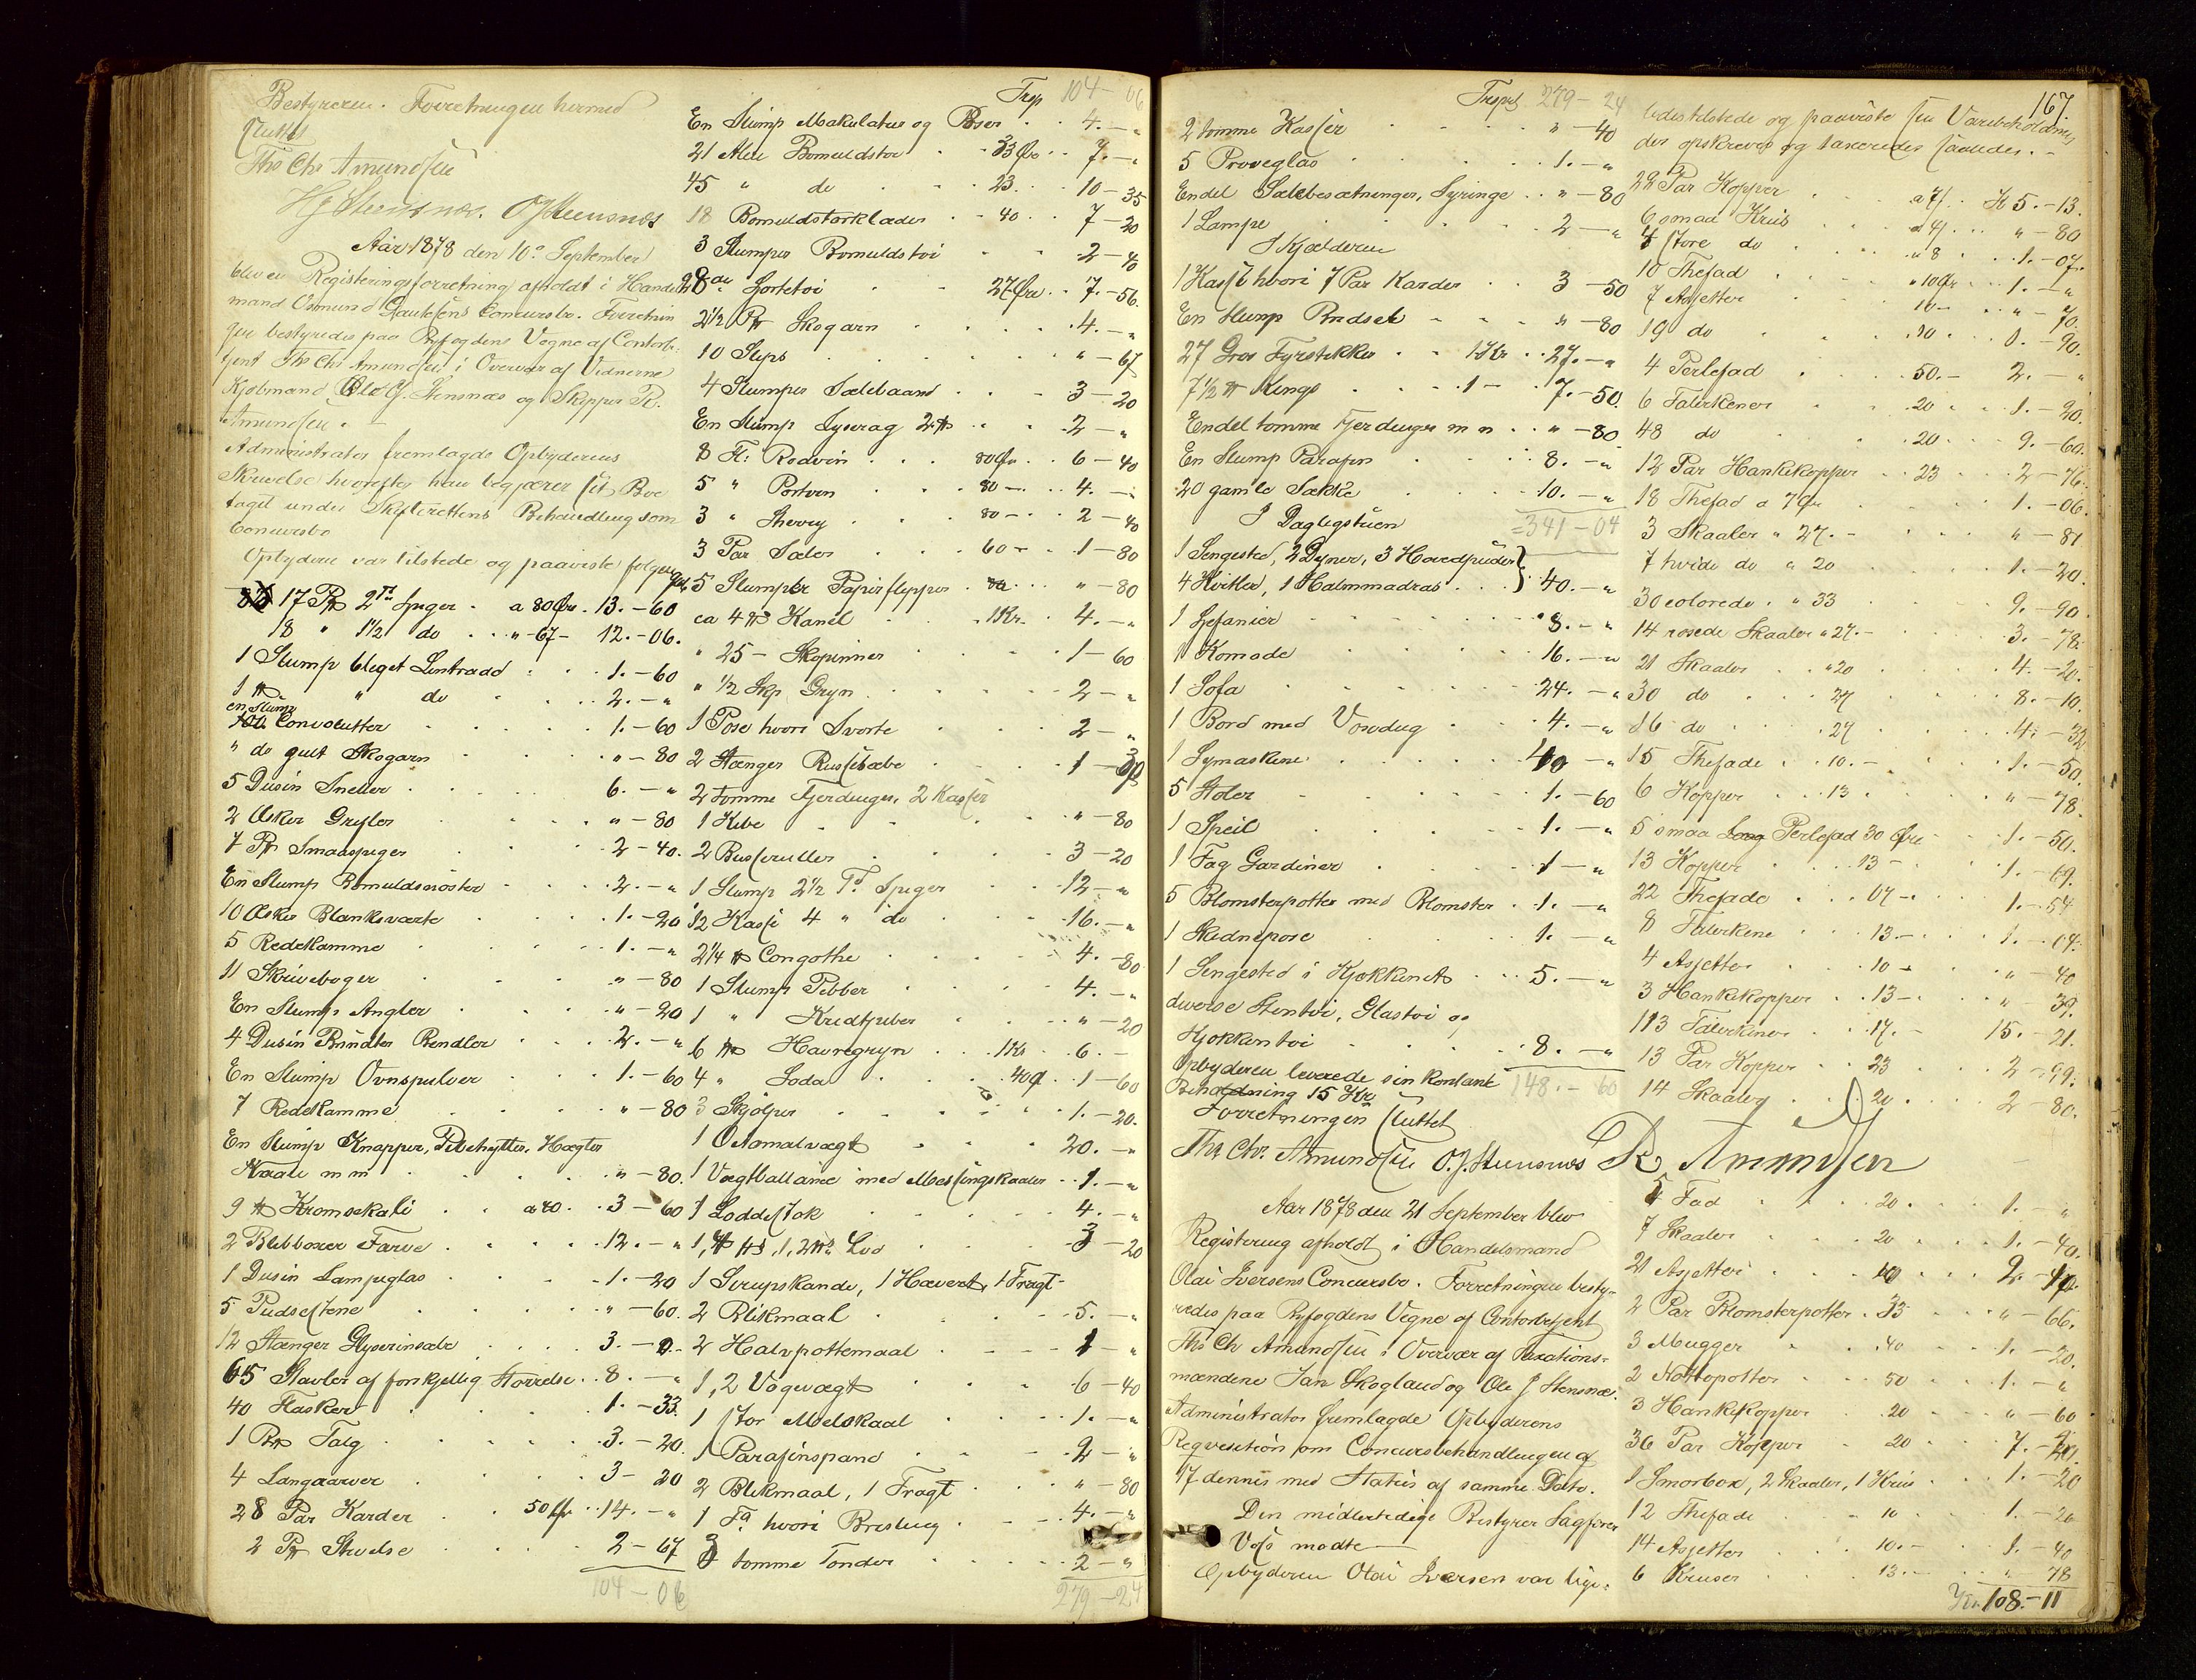 Bestyreren. Forretningen hermed
sluttet
Ths Chr Amundsen
HJ Stensnæs. OJ Stensnæs
Aar 1878 den 10de September
blev en Registeringsforretning afholdt i Handels
mand Osmund Gautesens Concursbo. Forretnin
gen bestyredes paa Byfogdens Vegne af Contorbe-
tjent Ths Chr Amundsen i Overvær af Vidnerne
Kjøbmand Ole J. Stensnæs og Skipper R.
Amundsen. —
Administrator fremlagde Opbyderens
Skrivelse hvorefter han begjærer sit Boe
taget under Skifterettens Behandling som
Concursbo
Opbyderen var tilstede og paaviste følgende
17 P 2" Spiger . a 80 Øre . 13. — 60
18 " 1½ do . . " - 67 - 12. — 06.
1 Slump bleget Lintraad . . . 1. — 60
1 " do . . . 2. — "
en Slump Convolutter . . . 1. — 60
" do guult Skogarn . . . " — 80
5 Dusin Sneller . . . 6. — "
2 Æsker Gryler . . . " — 80
7 P Smaaspiger . . . 2 — 40.
En Slump Bomuldsnöster . . . 2. — "
10 Æsker Blanksværte . . . 1. — 20
5 Redekamme . . . 1. — "
11 Skrivebøger . . . " — 80
En Slump Angler . . . " — 20
4 Dusin Bundter Bendler . . . 2. — "
En Slump Ovnspulver . . . 1. — 60
7 Redekamme . . . " — 80
En Slump Knapper, Hægter
Naale m m . . . " — 80.
9 Kromsekali . . a 40 . . 3 — 60
2 Blikboxer Farve . . . 12. — "
1 Dusin Lampeglas . . . 1. — 20
5 Pudsestene . . . " — 60.
12 Stænger Glyserinsæbe . . . 3. —
65 Tavler af forskjellig Størrelse . . 8. — "
40 Flasker . . . 1. — 33.
1 B Talg . . . 3. — 20.
4 Langaarver . . . 3 — 20
28 Par Karder . . 50 Øre . . 14. — "
2 P Stivelse . . . 2 — 67
104 — 06
Trsp 104 — 06
En Slump Makulatur og Poser . . 4. — "
21 Alen Bomuldstøi . . 33 Øre . . 7. — "
45 " do . . . 23 . . . 10 — 35
18 Bomuldstørklæder . . 40 . . 7 — 20
3 Slumper Bomuldstøi . . . 2 — 40
28 al Sjertetøi . . 27 Øre . . 7. — 56.
2½ P Skogarn . . . 4. — "
10 Slips . . . " — 67
4 Slumper Sælebaand . . . 3 — 20
En Slump . . . 2 — "
8 Fl: Rødvin . . . 80 Øre . . 6 — 40
5 " Portvin . . . 80 — . . 4. — "
3 " Sherry . . . 80 — . . 2 — 40
3 Par Sæler . . . 60 — . . 1 — 80
5 Slumper Papirflipper . . . " — 80
ca 4 Kanel . . . 1 Kr. . . 4. — "
" 25 — Skopinner . . . 1 — 60
" ½ Skp Gryn . . . 2 — "
1 Pose hvori Sværte . . . 2 — "
2 Stænger Russesæbe . . . 1 — 30
2 tomme Fjerdinger, 2 Kasser
1 Kibe . . . " — 80
2 Busseruller . . . 3 — 20
1 Slump 2½ T" Spiger . . 12 — "
½ Kasse 4 " do . . . 16. — "
2¼ Congothe . . . 4. — 80
1 Slump Pebber . . . 4. — "
1 " Kridtpiber . . . " — 20
6 Havregryn . . . 1 Kr . . 6. —
4 " Soda . . . 40 Ø . . 1 — 60
3 Skjölper . . . 1. — 20.
1 Decimalvægt . . . 20. — "
1 Vægtballance med Messingskaaler . . 1. — "
1 Loddestok . . . 4. — "
1, ½, 1, 2 Lod . . . 3 — 20
1 Sirupskande, 1 Hævert, 1 Tragt -
2 Blikmaal . . . 5. — "
2 Halvpottemaal . . . 1 — "
1, 2 Vogvægt . . . 6 — 40
1 stor Melskaal . . . 1. — "
1 Parafinspand . . . 2 — "
2 Blikmaal, 1 Tragt . . . " — 80
1 Fd hvori Brisling . . . 4. — "
3 tomme Tønder . . . 2 — "
279 — 24
Trspt 279 — 24
2 tomme Kasser . . . " — 40
5 Prøveglas . . . 1. — "
Endel Sælebesætninger, Syringe . . " — 80
1 Lampe . . . 2 — "
I Kjælderen
1 Kasse hvori 7 Par Karder . . 3 — 50
En Slump Bndsel . . . " — 80
27 Gros Fyrstikker . . 1 Kr . . 27. — "
7½ Kings . . . 1 — . 7. — 50.
Endel tomme Fjerdinger m m . . " — 80
En Slump Parafin . . . 8. — "
20 gamle Sække . . . 10. — "
I Dagligstuen = 341 — 04
1 Sengested, 2 Dyner, 3 Hovedpuder }
4 Hvitler, 1 Halmmadras . . . } 40. — "
1 Chefanier . . . 8. — "
1 Komode . . . 16. — "
1 Sofa . . . 24. — "
1 Bord med Voxdug . . . 4. — "
1 Symaskine . . . 40 — "
5 Stoler . . . 1. — 60
1 Speil . . . 1. — "
1 Fag Gardiner . . . 1 — "
5 Blomsterpotter med Blomster . . 1. — "
1 Skidnepose . . . 1. — "
1 Sengested i Kjøkkenet . . . 5. — "
diverse Stentøi, Glastøi og
Kjøkkentøi . . . 8. — "
Opbyderen leverede sin kontante 148. — 60
Beholdning 15 Kr
Forretningen sluttet
Ths Chr. Amundsen O. J. Stensnæs R. Amundsen
Aar 1878 den 21 September blev
Registering afholdt i Handelsmand
Olai Iversens Concursbo. Forretningen besty-
redes paa Byfogdens Vegne af Contorbetjent
Ths Ch Amundsen i Overvær af Taxations-
mændene Jan Skogland og Ole J Stensnæs.
Administrator fremlagde Opbyderens
Reqvisition om Concursbehandlingen af
17 dennes med Status af samme Dato.
Den midlertidige Bestyrer Sagfører
Voss mødte —
Opbyderen Olai Iversen var lige-
167.
ledes tilstede og paaviste sin Varebeholdning
der opskreves og taxeredes saaledes. —
28 Par Kopper . . . a 7/. . . Kr 5. — 13.
6 smaa Krus . . . a 4/. . . " — 80
4 store do . . . " 8 . . . 1. — 07.
10 Thefad . . . " 10 Øre . . . 1. — "
7 Asjetter . . . 10 — . . " — 70.
19 do . . . 10 . . . 1. — 90.
4 Perlefad . . . 50. — 2. — "
6 Talerkener . . . 20 . . 1. — 20.
48 do . . . 20 . . . 9. — 60.
12 Par Hankekopper . . 23 . . 2 — 76.
18 Thefad a 7 Øre . . . 1. — 06.
3 Skaaler " 27. — . . . " — 81
7 hvide do " 20 . . . 1. — 20.
30 colorede . " 33 . . . 9. — 90.
14 rosede Skaaler " 27. — . . . 3. — 78.
21 Skaaler . . " 20 . . . 4. — 20.
30 do . . . 27 . . . 8. — 10.
16 do . . . 27 . . . 4. — 32
15 Thefade . . 10. — . . . 1. — 50.
6 Kopper . . . 13 . . . " — 78.
5 smaa Perlefad 30 Øre . . 1. — 50.
13 Kopper . . . 13 — . . . 1. — 69.
22 Thefade . . . 07 — . . . 1. — 54
8 Talerkene . . . 13. — . . . 1. — 04.
4 Asjetter . . . 10 — . . . " — 40
3 Hankekopper . . 13 — . . . " — 39.
113 Talerkener . . . 17. — 15. — 21.
13 Par Kopper . . 23 . . . 2 — 99.
14 Skaaler . . . 20 . . . 2 — 80.
5 Fad . . . 20 . . . 1. — "
7 Skaaler . . . 20 . . . 1. — 40.
21 Asjetter . . . 10 . . . 2. — 10.
2 Par Blomsterpotter . 33 . . . " — 66.
3 Mugger . . . 40 . . . 1. — 20.
2 Nattepotter . . . 50 . . . 1. — "
3 Hankekopper . . . 20 . . . " — 60
36 Par Kopper . . 20 . . . 7. — 20.
1 Smørbox, 2 Skaaler, 1 Krus . . . 1. — 20
12 Thefade . . . 10 . . . 1. — 20
14 Asjetter . . . 10. — . . . 1. — 40
6 Kruser . . . 13. — . . . " — 78
Kr. 108. — 11